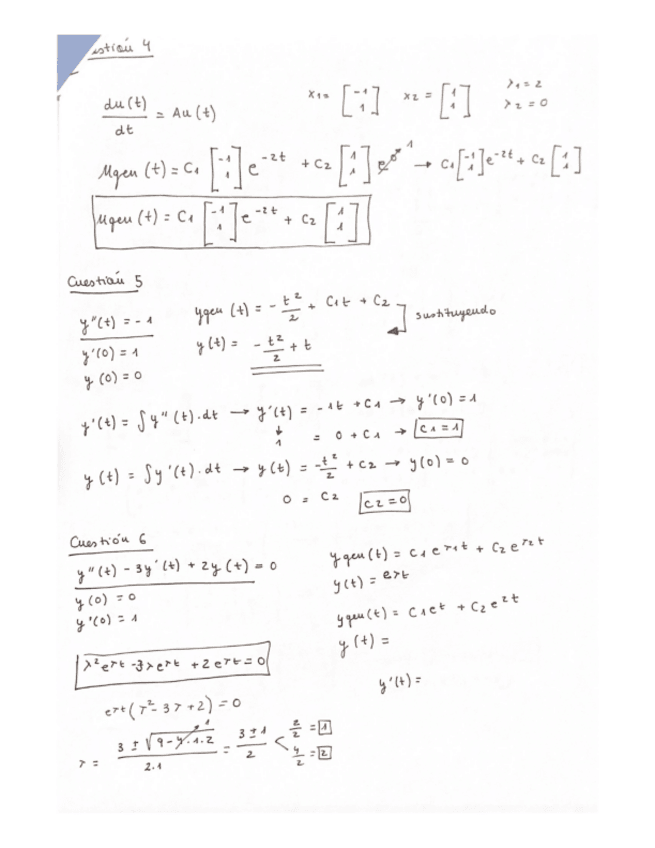 estión 4
x1 = [-1 1] x2 = [1 1] λ1 = 2
λ2 = 0
du(t)/dt = Au(t)
Mgen (t) = C1 [-1 1] e^-2t + C2 [1 1] e^0 1 → C1 [-1 1] e^-2t + C2 [1 1]
Mgen (t) = C1 [-1 1] e^-2t + C2 [1 1]
Cuestión 5
y''(t) = -1 ygen (t) = - t²/2 + C1t + C2
sustituyendo
y'(0) = 1 y(t) = - t²/2 + t
y (0) = 0
y'(t) = ∫ y''(t).dt → y'(t) = -1t + C1 → y'(0) = 1
1 = 0 + C1 → C1 = 1
y (t) = ∫ y'(t).dt → y(t) = -t²/2 + C2 → y(0) = 0
0 = C2 C2 = 0
Cuestión 6
y''(t) - 3y'(t) + 2y(t) = 0 ygen(t) = C1 e^r1t + C2 e^r2t
y(0) = 0 y(t) = e^rt
y'(0) = 1 ygen(t) = C1 e^t + C2 e^2t
y(t) =
λ² e^rt - 3λ e^rt + 2 e^rt = 0
y'(t) =
e^rt (r² - 3r + 2) = 0
r = 3 ± √9-4.1.2 1 / 2.1 = 3±1 / 2 < 2/2 = 1
4/2 = 2